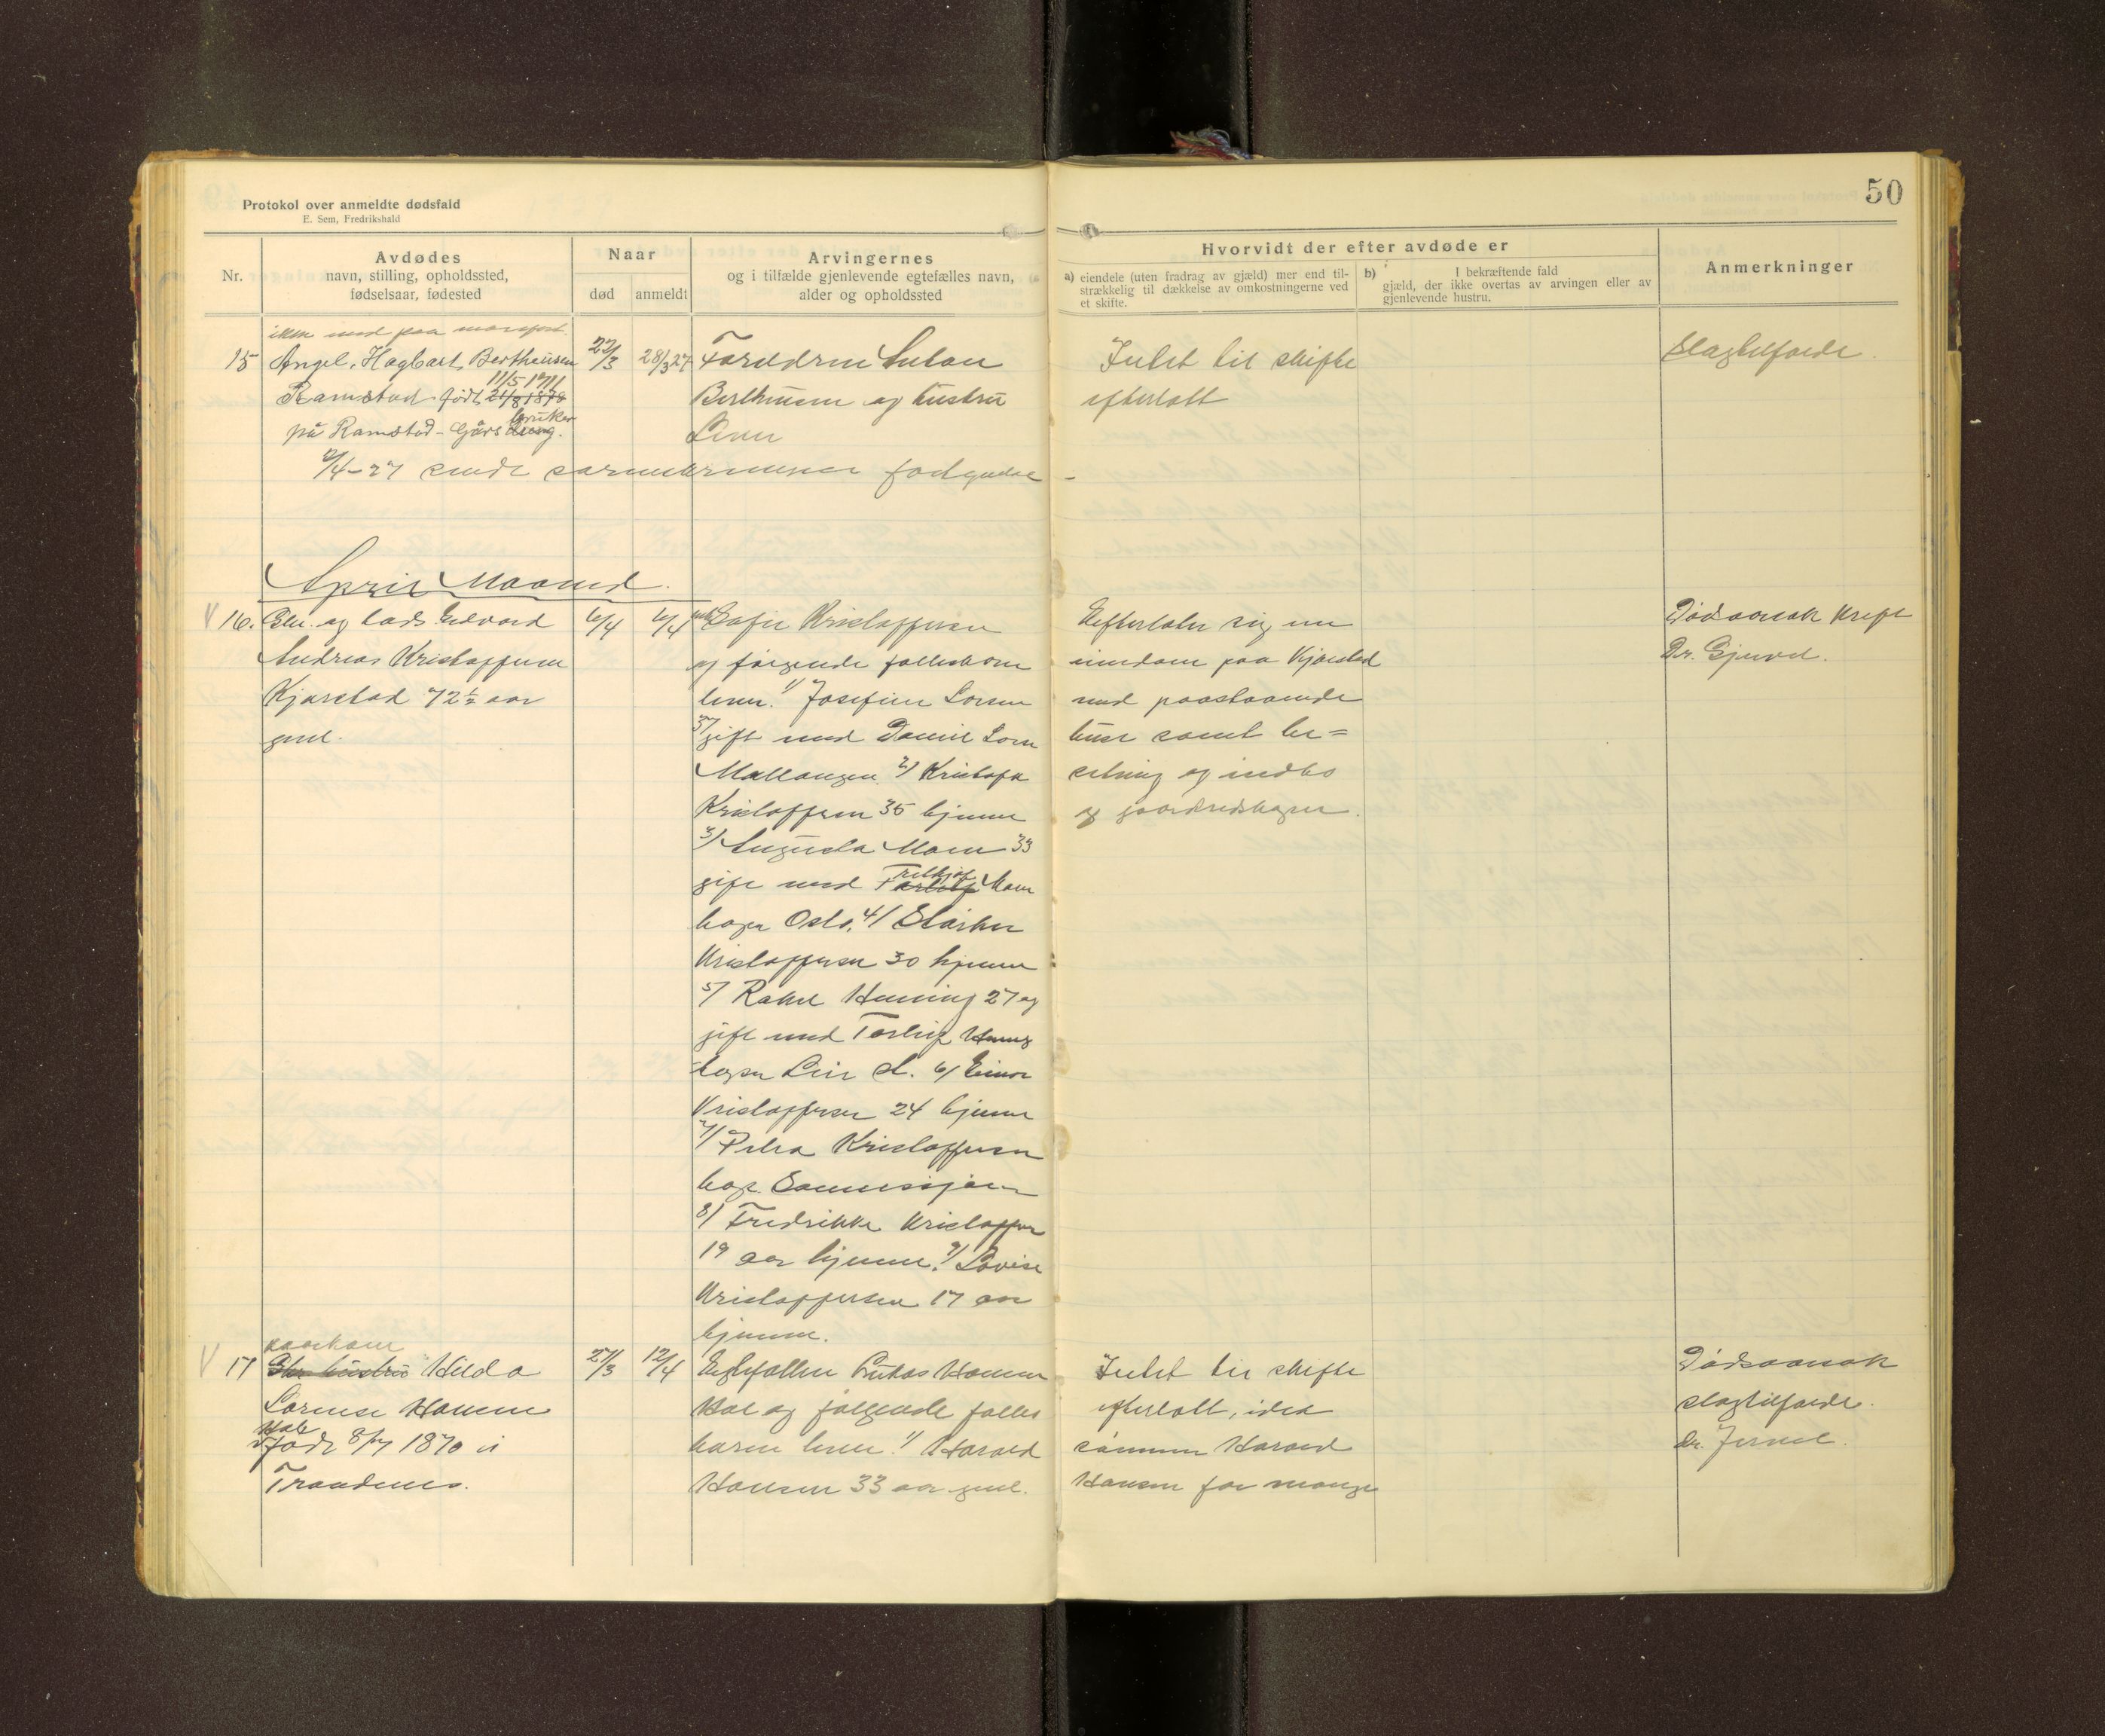 50
Protokol over anmeldte dødsfald
E. Sem, Fredrikshald
Nr.
Avdødes
navn, stilling, opholdssted,
fødselsaar, fødested
Naar
død
anmeldt
Arvingernes
og i tilfælde gjenlevende egtefælles navn,
alder og opholdssted
Hvorvidt der efter avdøde er
a) eiendele (uten fradrag av gjæld) mer end til-
strækkelig til dækkelse av omkostningerne ved
et skifte.
b) I bekræftende fald
gjæld, der ikke overtas av arvingen eller av
gjenlevende hustru.
Anmerkninger
ikke med paa
15 Angel. Hagbart Bertheusen
11/5 1911
Ramstad født 21/8 1878
bruker
på Ramstad - Gårs
22/3
28/3 27
Forældrene Anton
Bertheusen og hustru
Intet til skifte
efterlatt
Slagtilfælde.
/4-27 sende
April Maaned.
16. Gbr. og lods Edvard
Andreas Kristoffersen
Kjørstad 72½ aar
gml.
6/4
6/4
Sofie Kristoffersen
og følgende fællesbørn
lever. 1/ Josefine Lorsen
37 gift med Daniel Lors
Mallangen 2/ Kristofer
Kristoffersen 35 hjemme
3/ Augusta Moen 33
gift med Moen
bager Oslo, 4/
Kristoffersen 30 hjemme
5/ Rakel Henning 27 og
gift med Torleif
6/ Einar
Kristoffersen 24 hjemme
7/ Petra Kristoffersen
8/ Fredrikke Kristoffer
19 aar hjemme. 9/ Lovise
Kristoffersen 17 aar
hjemme.
Efterlater sig en
eiendom paa Kjørstad
med paastaaende
huse samt be=
setning og indbo
og gaardredskaper.
Dødsaarsak kreft
Dr. Gjervel.
17 Gbr hustru Hilda
Lorense Hansen
Hole
født 8/7 1870 i
Trondenes.
27/3
12/4
Egtefællen Lukas Hansen
Hol og følgende fælles
barn lever. 1/ Harald
Hansen 33 aar gml.
Intet til skifte
efterlatt, idet
sønnen Harald
Hansen for mange
Dødsaarsak
slagtilfælde.
dr.